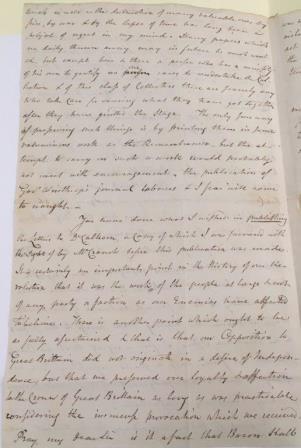 much is now the destruction of many valuable
by the lapse of time has long been a
subject of regret in my mind. Many papers which
we daily throw away may in future be much want
ed, but except here & there a person who has a
of his own to gratify no person cares to undertake the Col
lection & of this class of Collectors there are scarcely any
who take care for securing what they have got together
after they have quitted the Stage. The only sure way
of preserving such things is by printing them in some
voluminous work as the Remembrancer, but the at-
tempt to carry on such a work would probably
not meet with encouragement — the publication of
Gov Winthrop's journal labours & I fear will come
to nought. —
You have done what I wished in publishing
the Letters to Dr Calkoen, a Copy of which I was favoured with
the sight of by Mr Cranch before this publication was made.
It is certainly an important point in the History of our Re-
volution that it was the work of the people at large & not
of any party or faction as our Enemies have affected
to believe. There is another point which ought to be
as fully ascertained & that is that our Opposition to
Great Brittain did not originate in a desire of Indepen-
dence, but that we preserved our loyalty & affection
to the Crown of Great Brittain as long as was practicable
considering the provocation which we received
Pray my dear Sir is it a fact that Baron Stahl